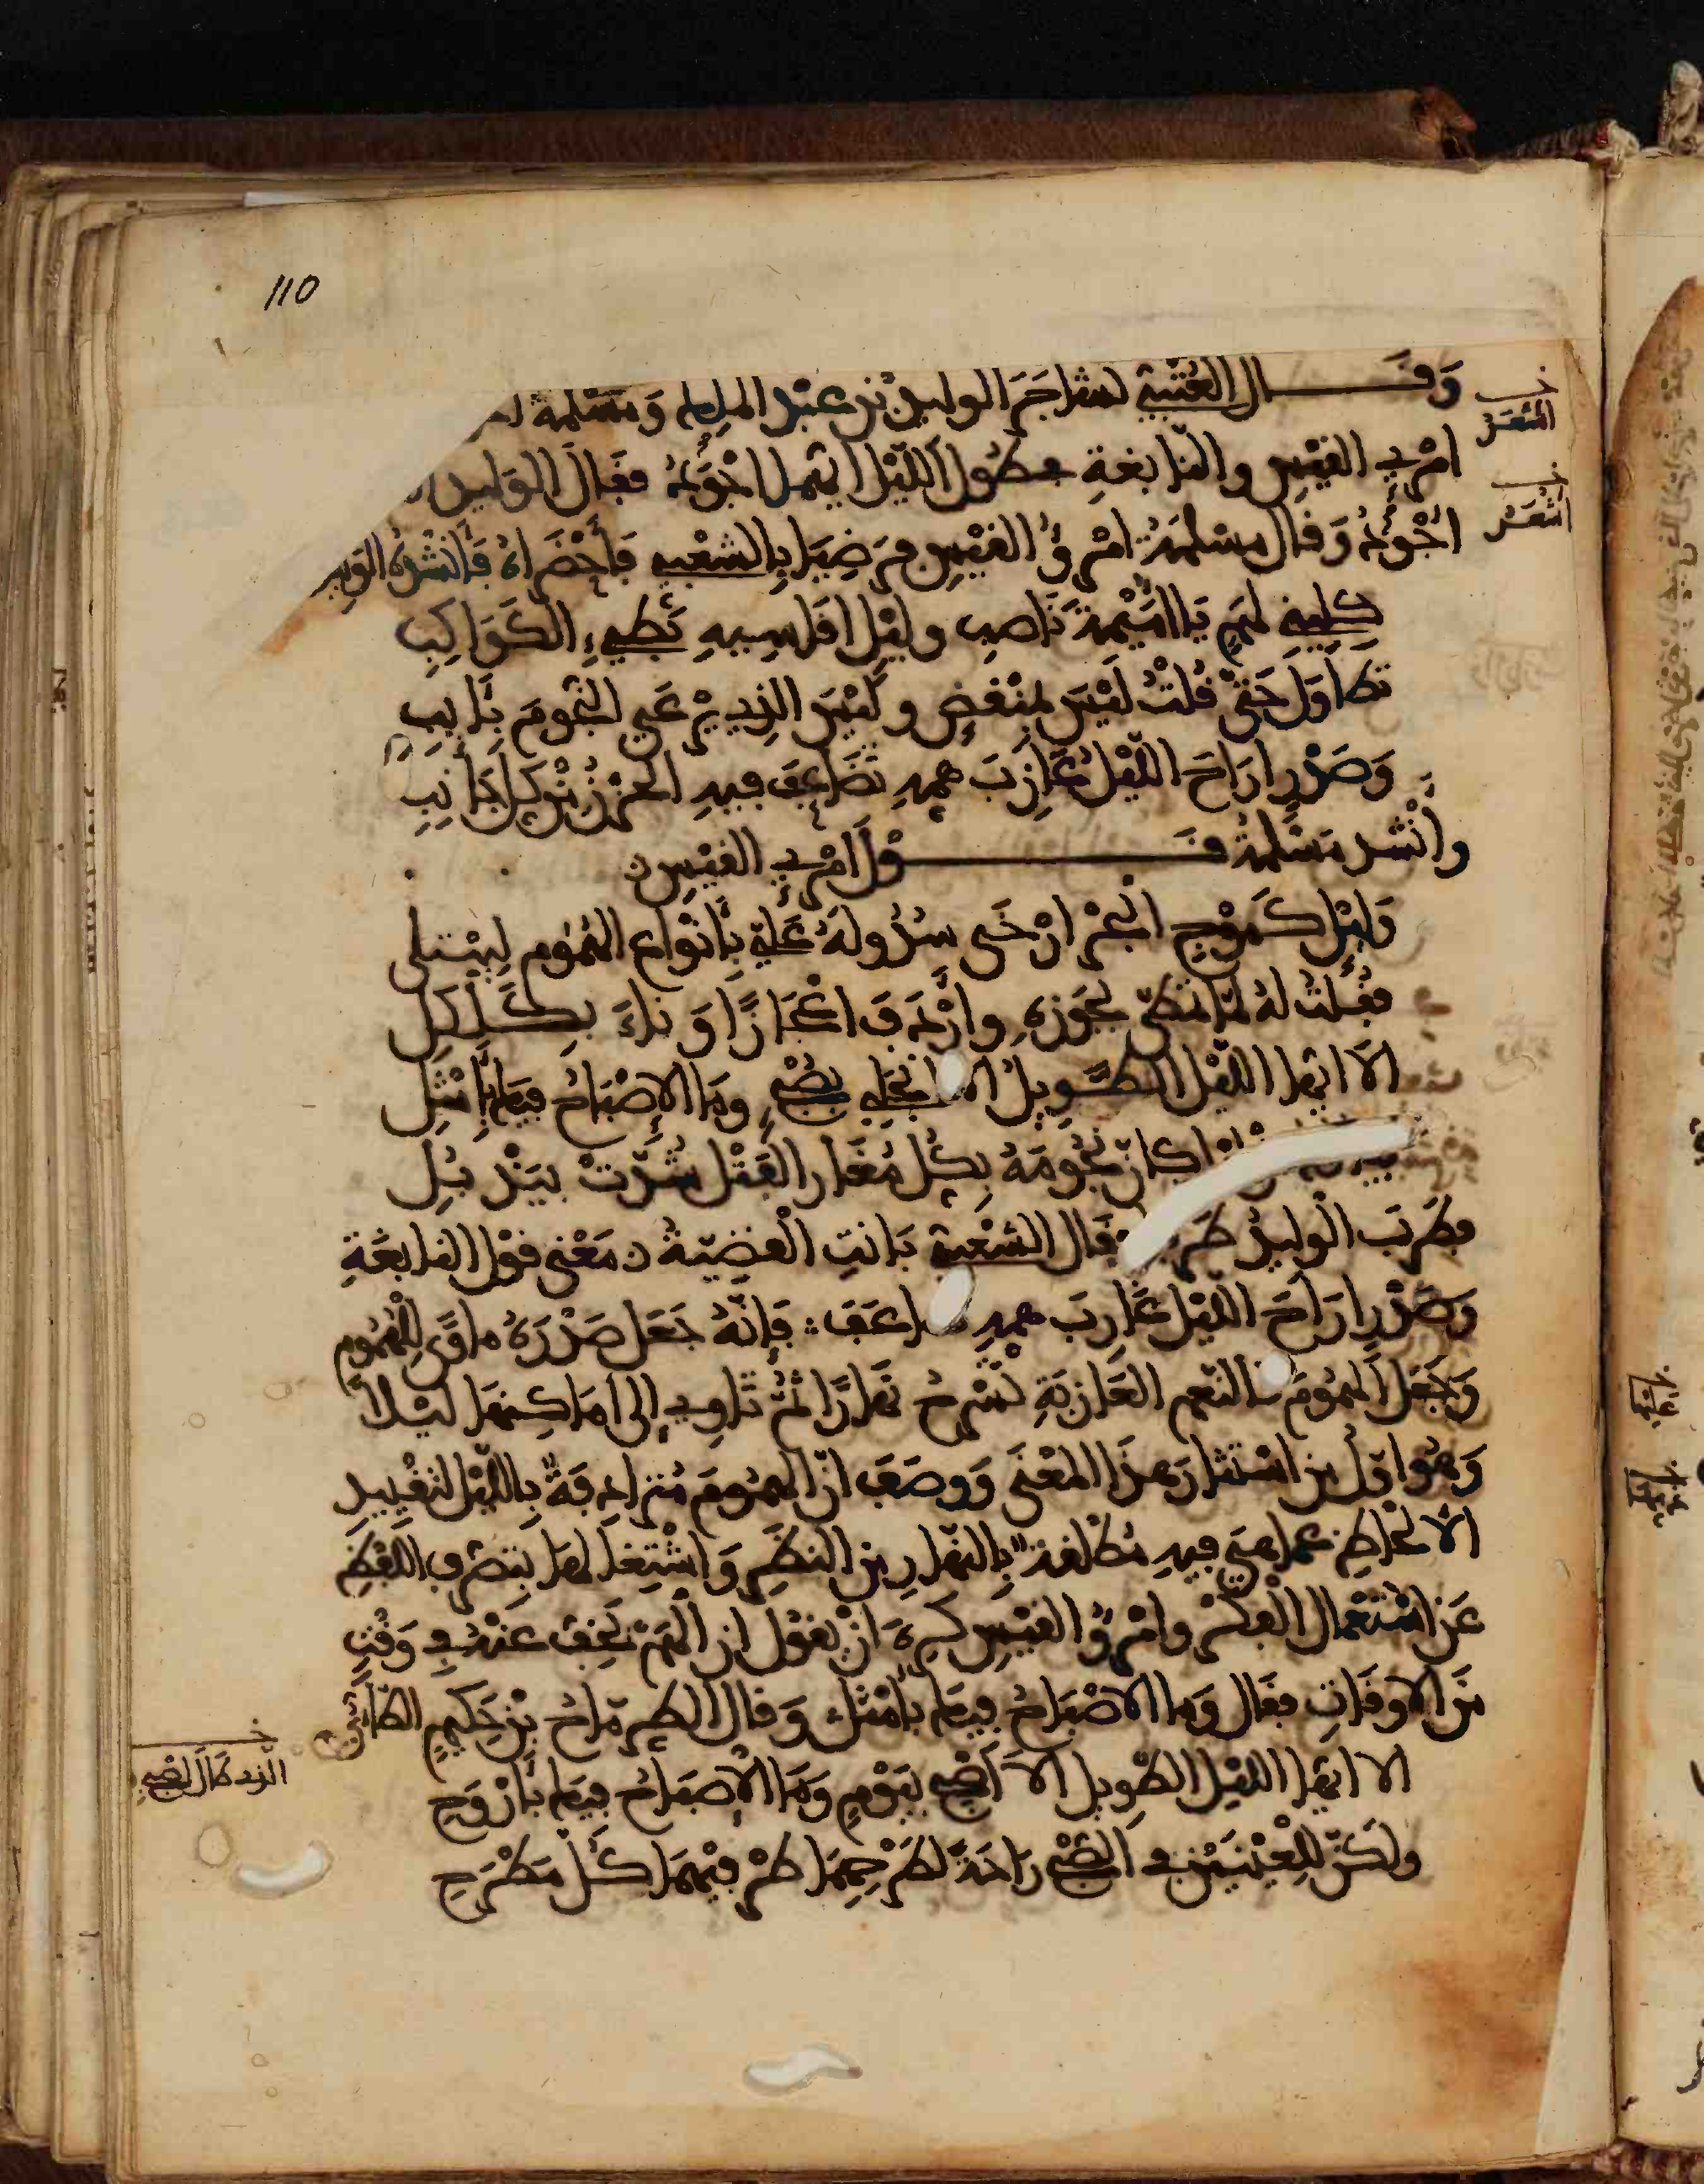 110
وقال العتبي تشاجر الوليد بن عبد الملك ومسلمة
امرئ القيس والنابغة في طول الليل ايهما اجود فقال الوليد
اجود وقال مسلمة امرؤ القيس فرضيا بالشعبي فأحضراه فأنشده الوليد
كليني لهم يا اميمة ناصب وليل اقاسيه بطيء الكواكب
تطاول حتى قلت ليس بمنقض وليس الذي يرعى النجوم بآيب
وصدر اراح الليل عازب همه تضاعف فيه الحزن من كل جانب
وانشد مسلمة قول امرئ القيس
وليل كموج البحر ارخى سدوله علي بأنواع الهموم ليبتلي
فقلت له لما تمطى بجوزه واردف اعجازا وناء بكلكل
الا ايها الليل الطويل الا انجلي بصبح وما الإصباح فيك بأمثل
كان نجومه بكل مغار الفتل شدت بيذبل
فطرب الوليد طربا فقال الشعبي بانت القضية معنى قول النابغة
وصدر اراح الليل عازب همه فإنه جعل صدره مأوى للهموم
وجعل الهموم كالنعم العازبة تسرح نهارا ثم تأوي إلى اماكنها ليلا
وهو اول من استثار هذا المعنى ووصف ان الهموم مترادفة بالليل لتقييد
الالحاظ عما هي فيه مطلقة بالنهار من النظر واشتغالها بتصرف اللفظ
عن استعمال الفكر وامرؤ القيس كره ان يقول ان الهم يخف عنه في وقت
من الاوقات فقال وما الاصباح فيك بأمثل وقال الطرماح بن حكيم الطائي
الا ايها الليل الطويل الا اصبح بيوم وما الإصباح فيك بأروح
ولكن للعينين في الصبح راحة لطرحهما طرفيهما كل مطرح